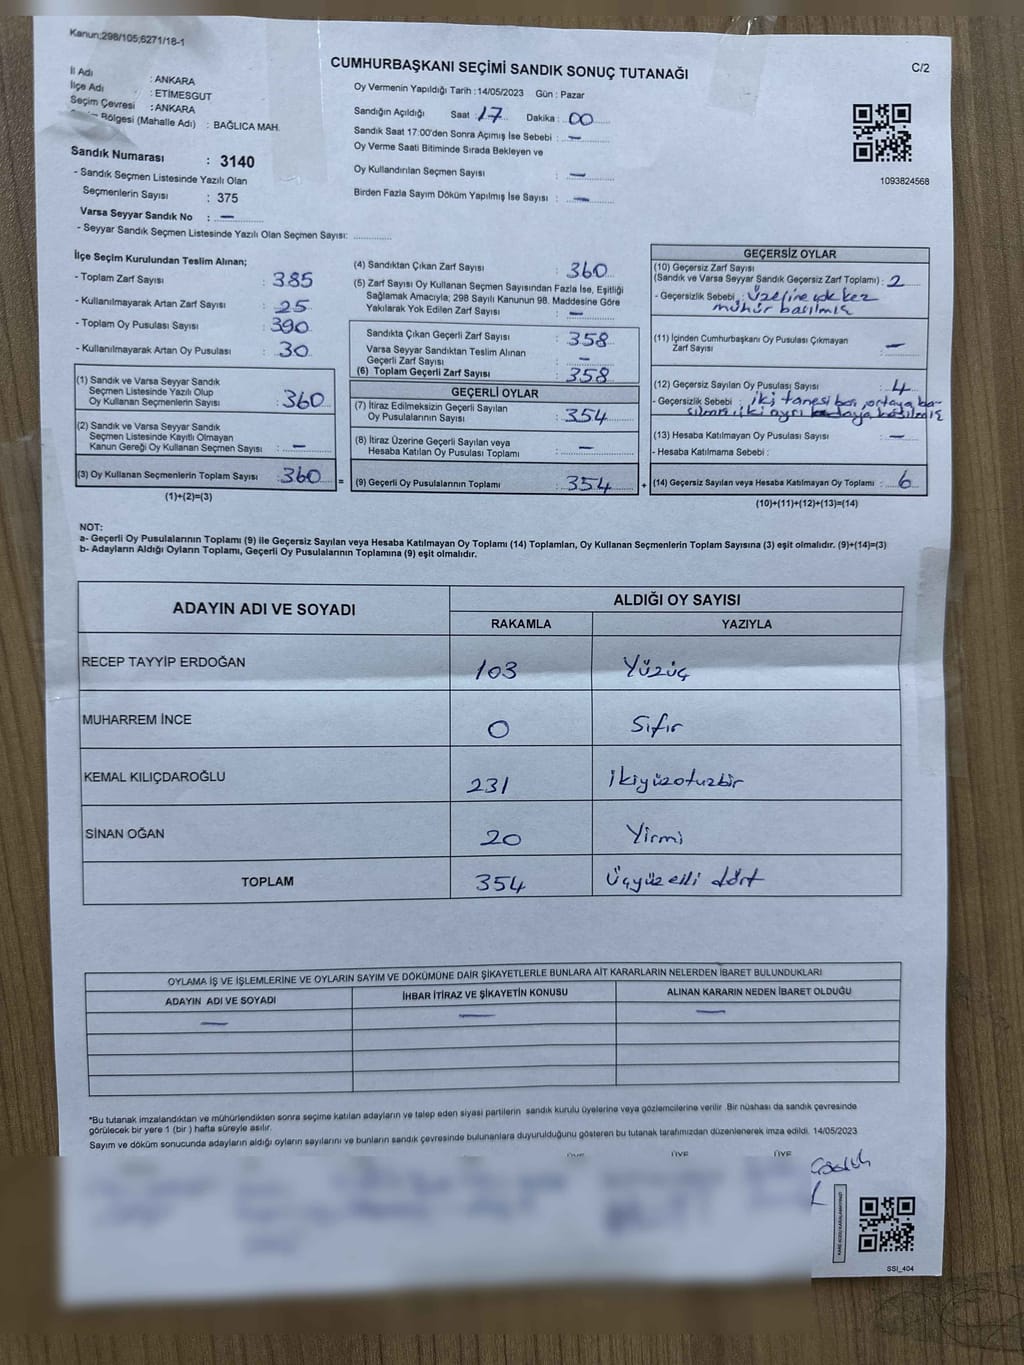 Kanun;298/105;6271/18-1
CUMHURBAŞKANI SEÇİMİ SANDIK SONUÇ TUTANAĞI
C/2
İl Adı : ANKARA
İlçe Adı : ETİMESGUT
Seçim Çevresi : ANKARA
Bölgesi (Mahalle Adı) : BAĞLICA MAH.
Sandık Numarası : 3140
- Sandık Seçmen Listesinde Yazılı Olan
Seçmenlerin Sayısı : 375
Varsa Seyyar Sandık No : —
- Seyyar Sandık Seçmen Listesinde Yazılı Olan Seçmen Sayısı:
Oy Vermenin Yapıldığı Tarih : 14/05/2023 Gün : Pazar
Sandığın Açıldığı Saat : 17 Dakika : 00
Sandık Saat 17:00'den Sonra Açımış İse Sebebi : —
Oy Verme Saati Bitiminde Sırada Bekleyen ve
Oy Kullandırılan Seçmen Sayısı : —
Birden Fazla Sayım Döküm Yapılmış İse Sayısı : —
1093824568
İlçe Seçim Kurulundan Teslim Alınan;
- Toplam Zarf Sayısı : 385
- Kullanılmayarak Artan Zarf Sayısı : 25
- Toplam Oy Pusulası Sayısı : 390
- Kullanılmayarak Artan Oy Pusulası : 30
(1) Sandık ve Varsa Seyyar Sandık
Seçmen Listesinde Yazılı Olup
Oy Kullanan Seçmenlerin Sayısı : 360
(2) Sandık ve Varsa Seyyar Sandık
Seçmen Listesinde Kayıtlı Olmayan
Kanun Gereği Oy Kullanan Seçmen Sayısı : —
(3) Oy Kullanan Seçmenlerin Toplam Sayısı : 360
(1)+(2)=(3)
=
(4) Sandıktan Çıkan Zarf Sayısı : 360
(5) Zarf Sayısı Oy Kullanan Seçmen Sayısından Fazla İse, Eşitliği
Sağlamak Amacıyla; 298 Sayılı Kanunun 98. Maddesine Göre
Yakılarak Yok Edilen Zarf Sayısı : —
Sandıkta Çıkan Geçerli Zarf Sayısı : 358
Varsa Seyyar Sandıktan Teslim Alınan
Geçerli Zarf Sayısı : —
(6) Toplam Geçerli Zarf Sayısı : 358
GEÇERLİ OYLAR
(7) İtiraz Edilmeksizin Geçerli Sayılan
Oy Pusulalarının Sayısı : 354
(8) İtiraz Üzerine Geçerli Sayılan veya
Hesaba Katılan Oy Pusulası Toplamı : —
(9) Geçerli Oy Pusulalarının Toplamı : 354
+
GEÇERSİZ OYLAR
(10) Geçersiz Zarf Sayısı
(Sandık ve Varsa Seyyar Sandık Geçersiz Zarf Toplamı) : 2
- Geçersizlik Sebebi : Üzerine çok kez
mühür basılmış
(11) İçinden Cumhurbaşkanı Oy Pusulası Çıkmayan
Zarf Sayısı : —
(12) Geçersiz Sayılan Oy Pusulası Sayısı : 4
- Geçersizlik Sebebi : iki tanesi boş, ortaya ba-
sılmış iki ayrı adaya basılmış
(13) Hesaba Katılmayan Oy Pusulası Sayısı : —
- Hesaba Katılmama Sebebi :
(14) Geçersiz Sayılan veya Hesaba Katılmayan Oy Toplamı : 6
(10)+(11)+(12)+(13)=(14)
NOT:
a- Geçerli Oy Pusulalarının Toplamı (9) ile Geçersiz Sayılan veya Hesaba Katılmayan Oy Toplamı (14) Toplamları, Oy Kullanan Seçmenlerin Toplam Sayısına (3) eşit olmalıdır. (9)+(14)=(3)
b- Adayların Aldığı Oyların Toplamı, Geçerli Oy Pusulalarının Toplamına (9) eşit olmalıdır.
ADAYIN ADI VE SOYADI ALDIĞI OY SAYISI
RAKAMLA YAZIYLA
RECEP TAYYİP ERDOĞAN 103 Yüzüç
MUHARREM İNCE 0 Sıfır
KEMAL KILIÇDAROĞLU 231 İkiyüzotuzbir
SİNAN OĞAN 20 Yirmi
TOPLAM 354 Üçyüz elli dört
OYLAMA İŞ VE İŞLEMLERİNE VE OYLARIN SAYIM VE DÖKÜMÜNE DAİR ŞİKAYETLERLE BUNLARA AİT KARARLARIN NELERDEN İBARET BULUNDUKLARI
ADAYIN ADI VE SOYADI İHBAR İTİRAZ VE ŞİKAYETİN KONUSU ALINAN KARARIN NEDEN İBARET OLDUĞU
— — —
*Bu tutanak imzalandıktan ve mühürlendikten sonra seçime katılan adayların ve talep eden siyasi partilerin sandık kurulu üyelerine veya gözlemcilerine verilir. Bir nüshası da sandık çevresinde
görülecek bir yere 1 (bir ) hafta süreyle asılır.
Sayım ve döküm sonucunda adayların aldığı oyların sayılarını ve bunların sandık çevresinde bulunanlara duyurulduğunu gösteren bu tutanak tarafımızdan düzenlenerek imza edildi. 14/05/2023
ÜYE ÜYE ÜYE
SSI_404